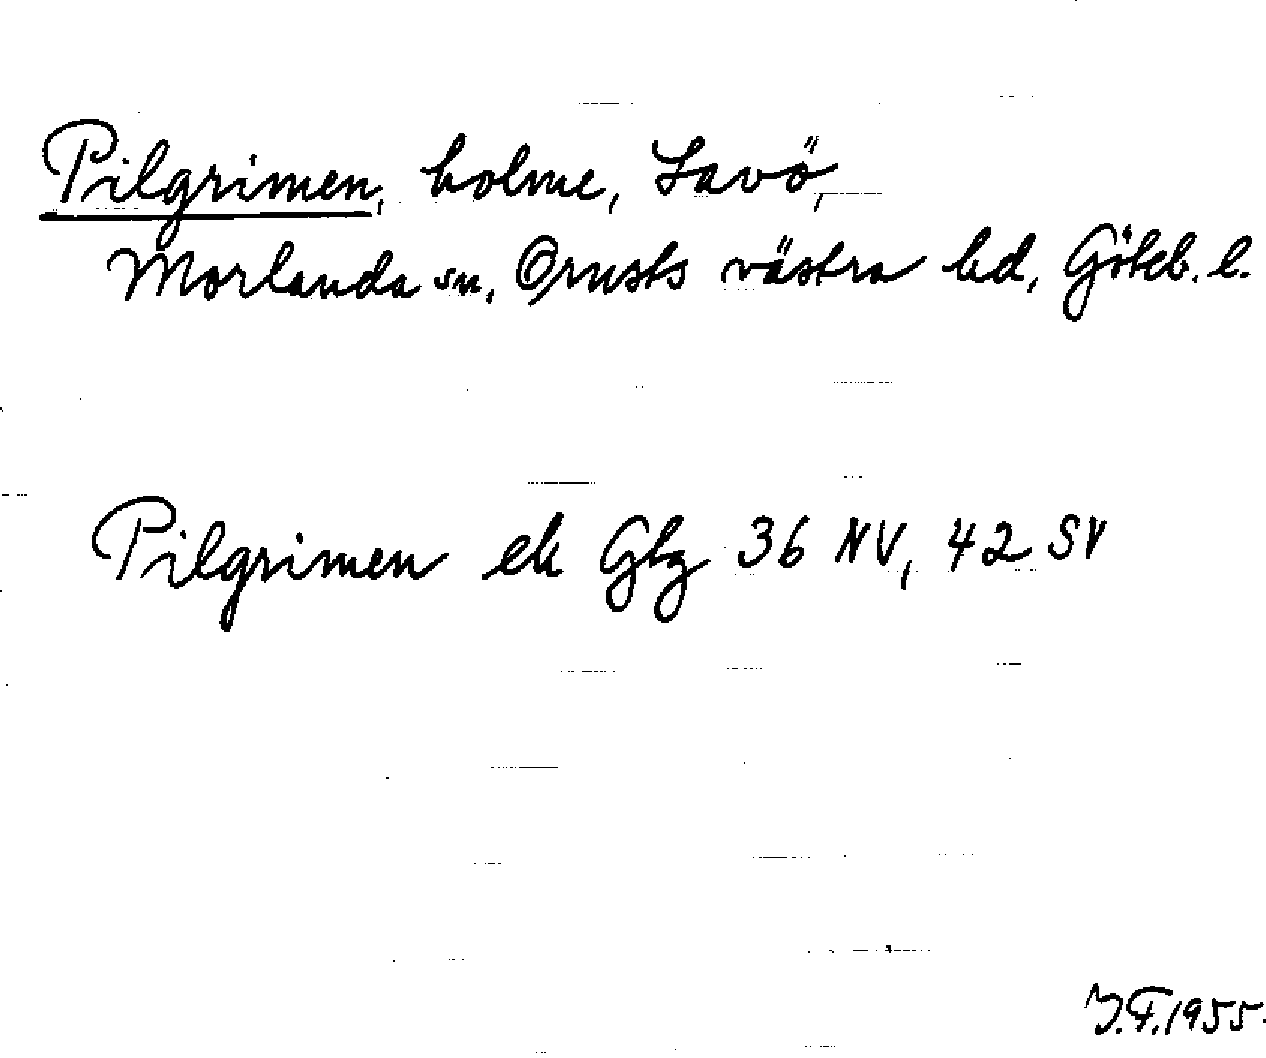 Pilgrimen, holme, Lavö,
Morlanda sn, Orusts västra hd, Göteb. l.
Pilgrimen ek Gbg 36 NV, 42 SV
J.F. 1955.